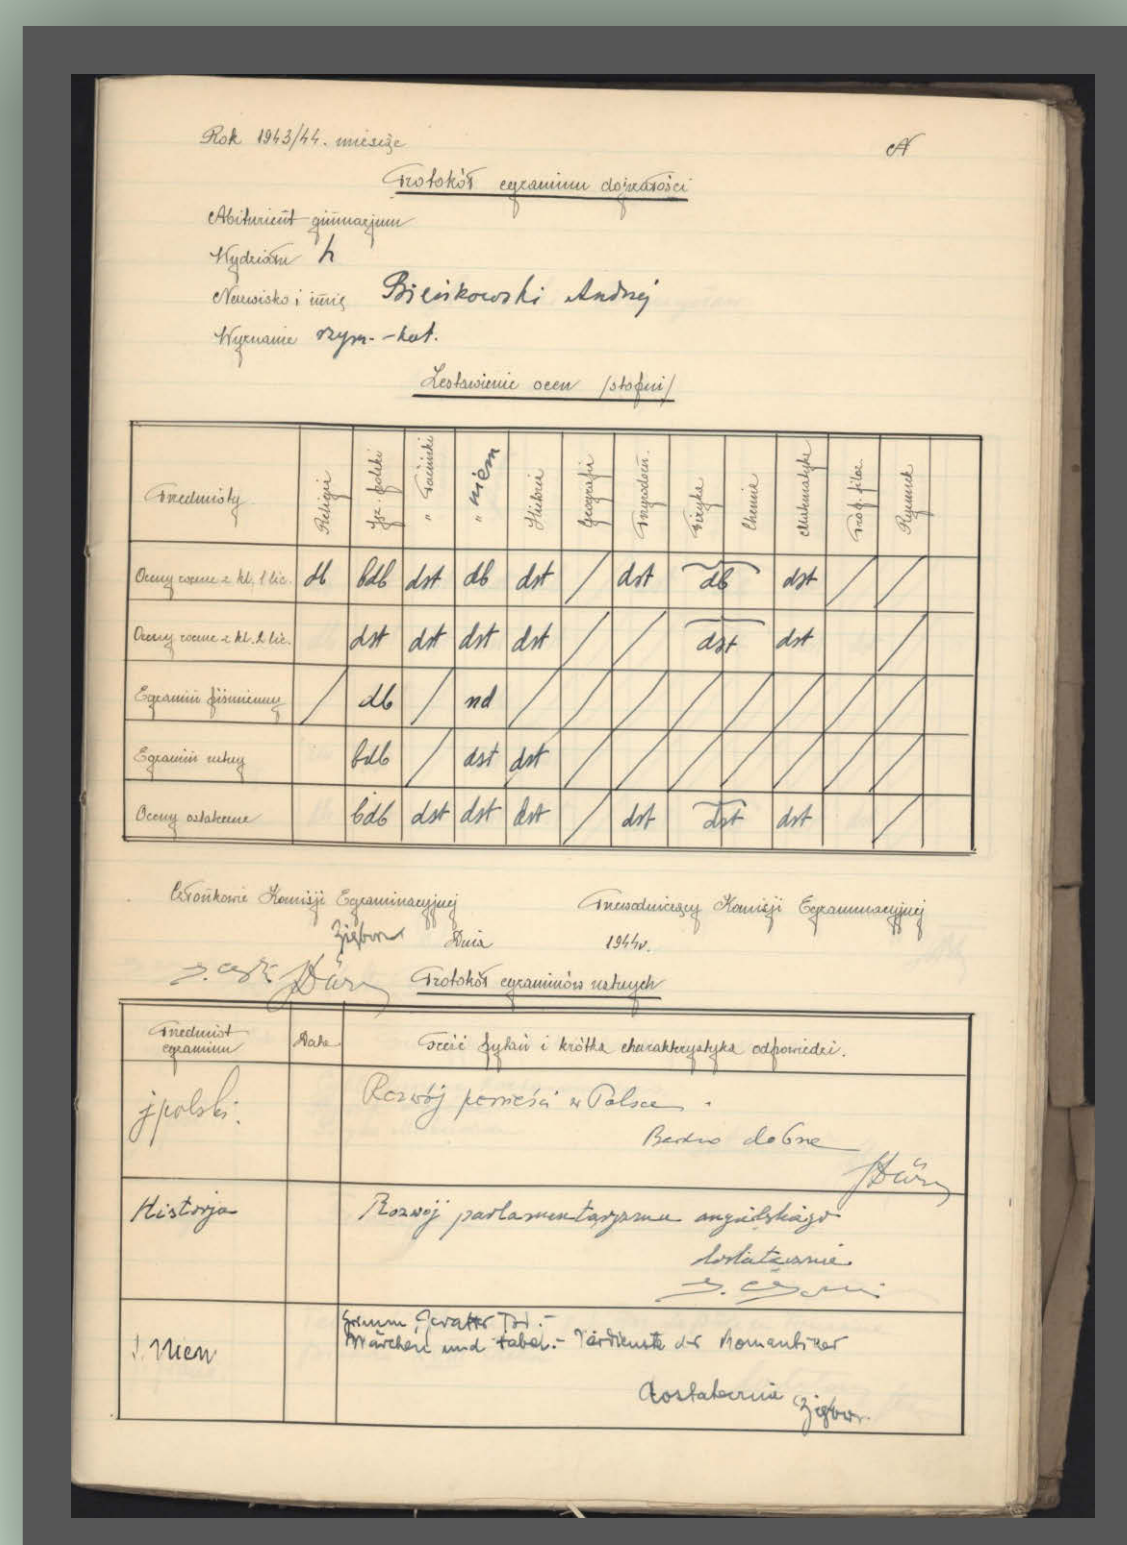 Rok 1943/44. miesiąc
N
Protokół egzaminu dojrzałości
Abiturient gimnazjum
Wydziału h
Nazwisko i imię Bieńkowski Andrzej
Wyznanie rzym.-kat.
Zestawienie ocen /stopni/
Przedmioty Religia Jęz. polski " łaciński " niem Historia Geografia Przyrodozn. Fizyka Chemia Matematyka Prop. filoz. Rysunek
Oceny roczne z kl. 1 lic. db bdb dst db dst / dst db dst / /
Oceny roczne z kl. 2 lic. dst dst dst dst / / dst dst /
Egzamin piśmienny / db / nd / / / / / / / /
Egzamin ustny bdb / dst dst / / / / / / /
Oceny ostateczne bdb dst dst dst / dst dst dst /
Członkowie Komisji Egzaminacyjnej Przewodniczący Komisji Egzaminacyjnej
Dnia 1944r.
Protokół egzaminów ustnych
Przedmiot egzaminu Data Treść pytań i krótka charakterystyka odpowiedzi.
j polski. Rozwój powieści w Polsce.
Bardzo dobrze
Historja Rozwój parlamentaryzmu angielskiego
dostatecznie
J. Niem Grimm, Gevatter Tod.-
Märchen und Fabel.- Verdienste der Romantiker
dostatecznie